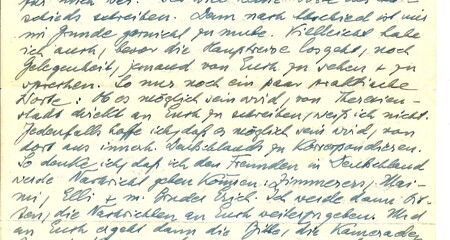 schieds schreiben. Denn nach Abschied ist mir
im Grunde garnicht zu mute. Vielleicht habe
ich auch, bevor die Hauptreise losgeht, noch
Gelegenheit, jemand von Euch zu sehen + zu
sprechen. So nur noch ein paar praktische
Worte: Ob es möglich sein wird, von Theresien-
stadt direkt an Euch zu schreiben, weiß ich nicht.
Jedenfalls hoffe ich, daß es möglich sein wird, von
dort aus innerh. Deutschlands zu korrespondieren.
So denke ich, daß ich den Freunden in Deutschland
werde Nachricht geben können: Zimmerers,
Elli + m. Bruder Erich. Ich werde dann bit-
ten, die Nachrichten an Euch weiterzugeben. Und
an Euch ergeht dann die Bitte, die Kameraden